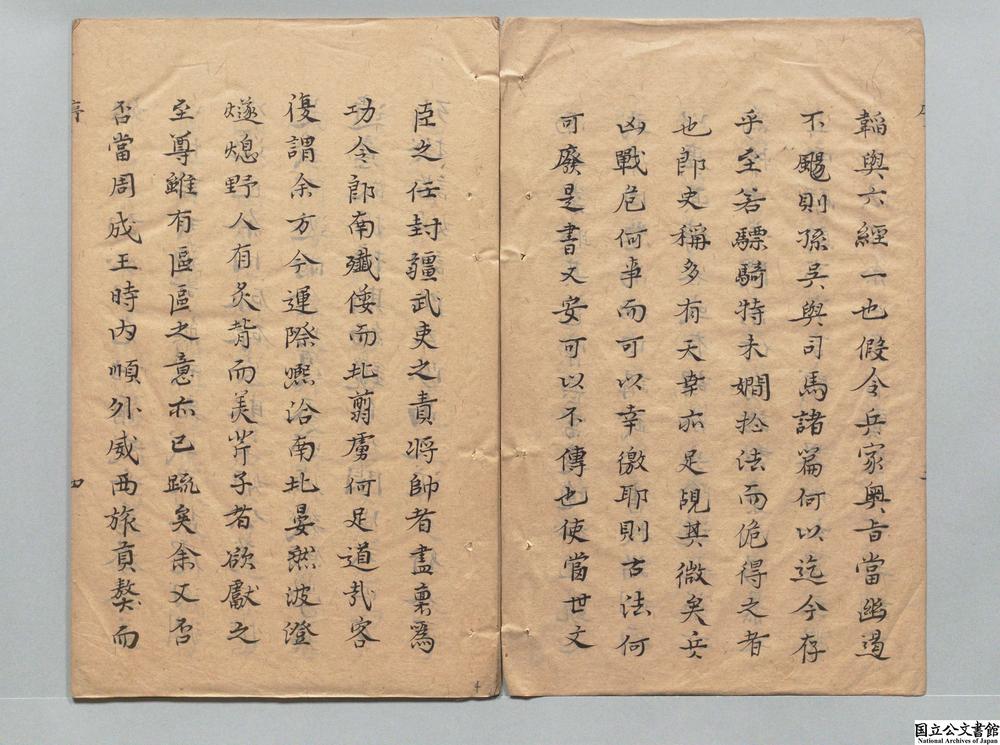 韜與六經一也假令兵家奧旨當幽遏
不颺則孫吳與司馬諸篇何以迄今存
乎至若驃騎特未嫺於法而佹得之者
也郎史稱多有天幸亦足覘其微矣兵
凶戰危何事而可以幸徼耶則古法何
可廢是書又安可以不傳也使當世文
臣之任封疆武吏之責將帥者盡稟爲
功令郎南殲倭而北翦虜何足道㢤客
復謂余方今運際熈洽南北晏然波澄
燧熄野人有炙背而美芹子者欲獻之
至尊雖有區區之意亦已疏矣余又否
否當周成王時內順外威西旅貢獒而
序
四
国立公文書館
National Archives of Japan